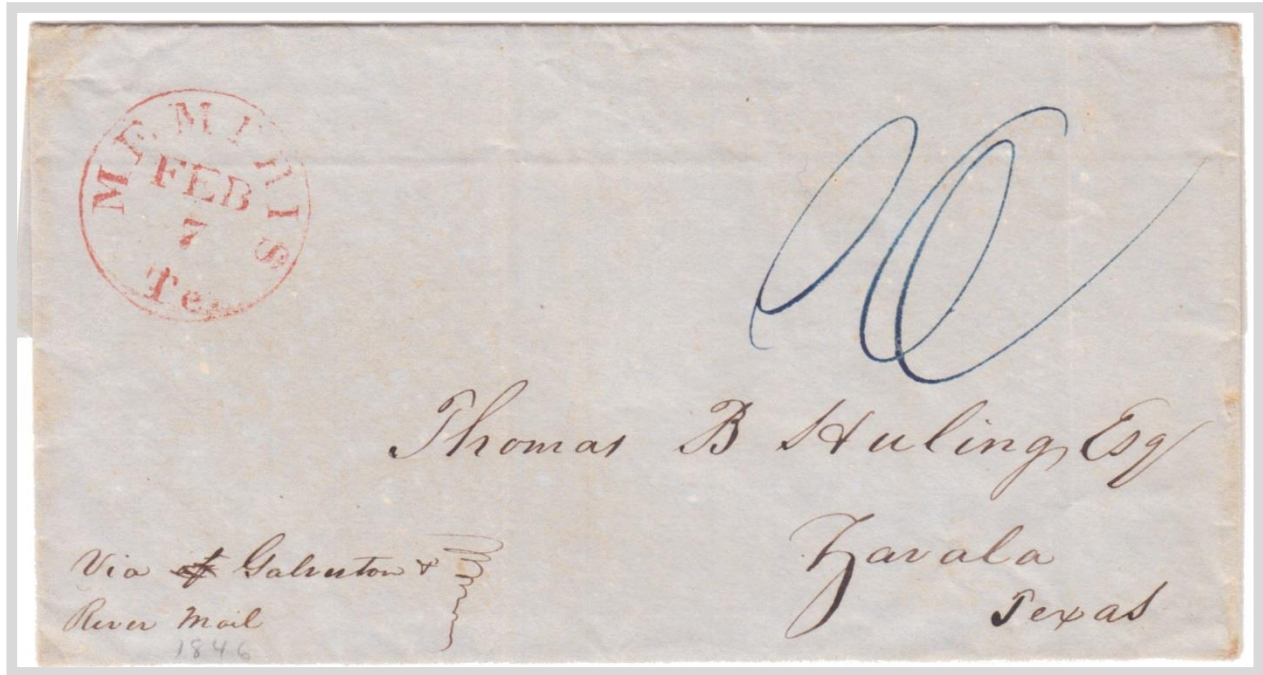 MEMPHIS
FEB
7
Te
Thomas B Huling, Esq
Zavala
Texas
Via Galveston &
River Mail
1846